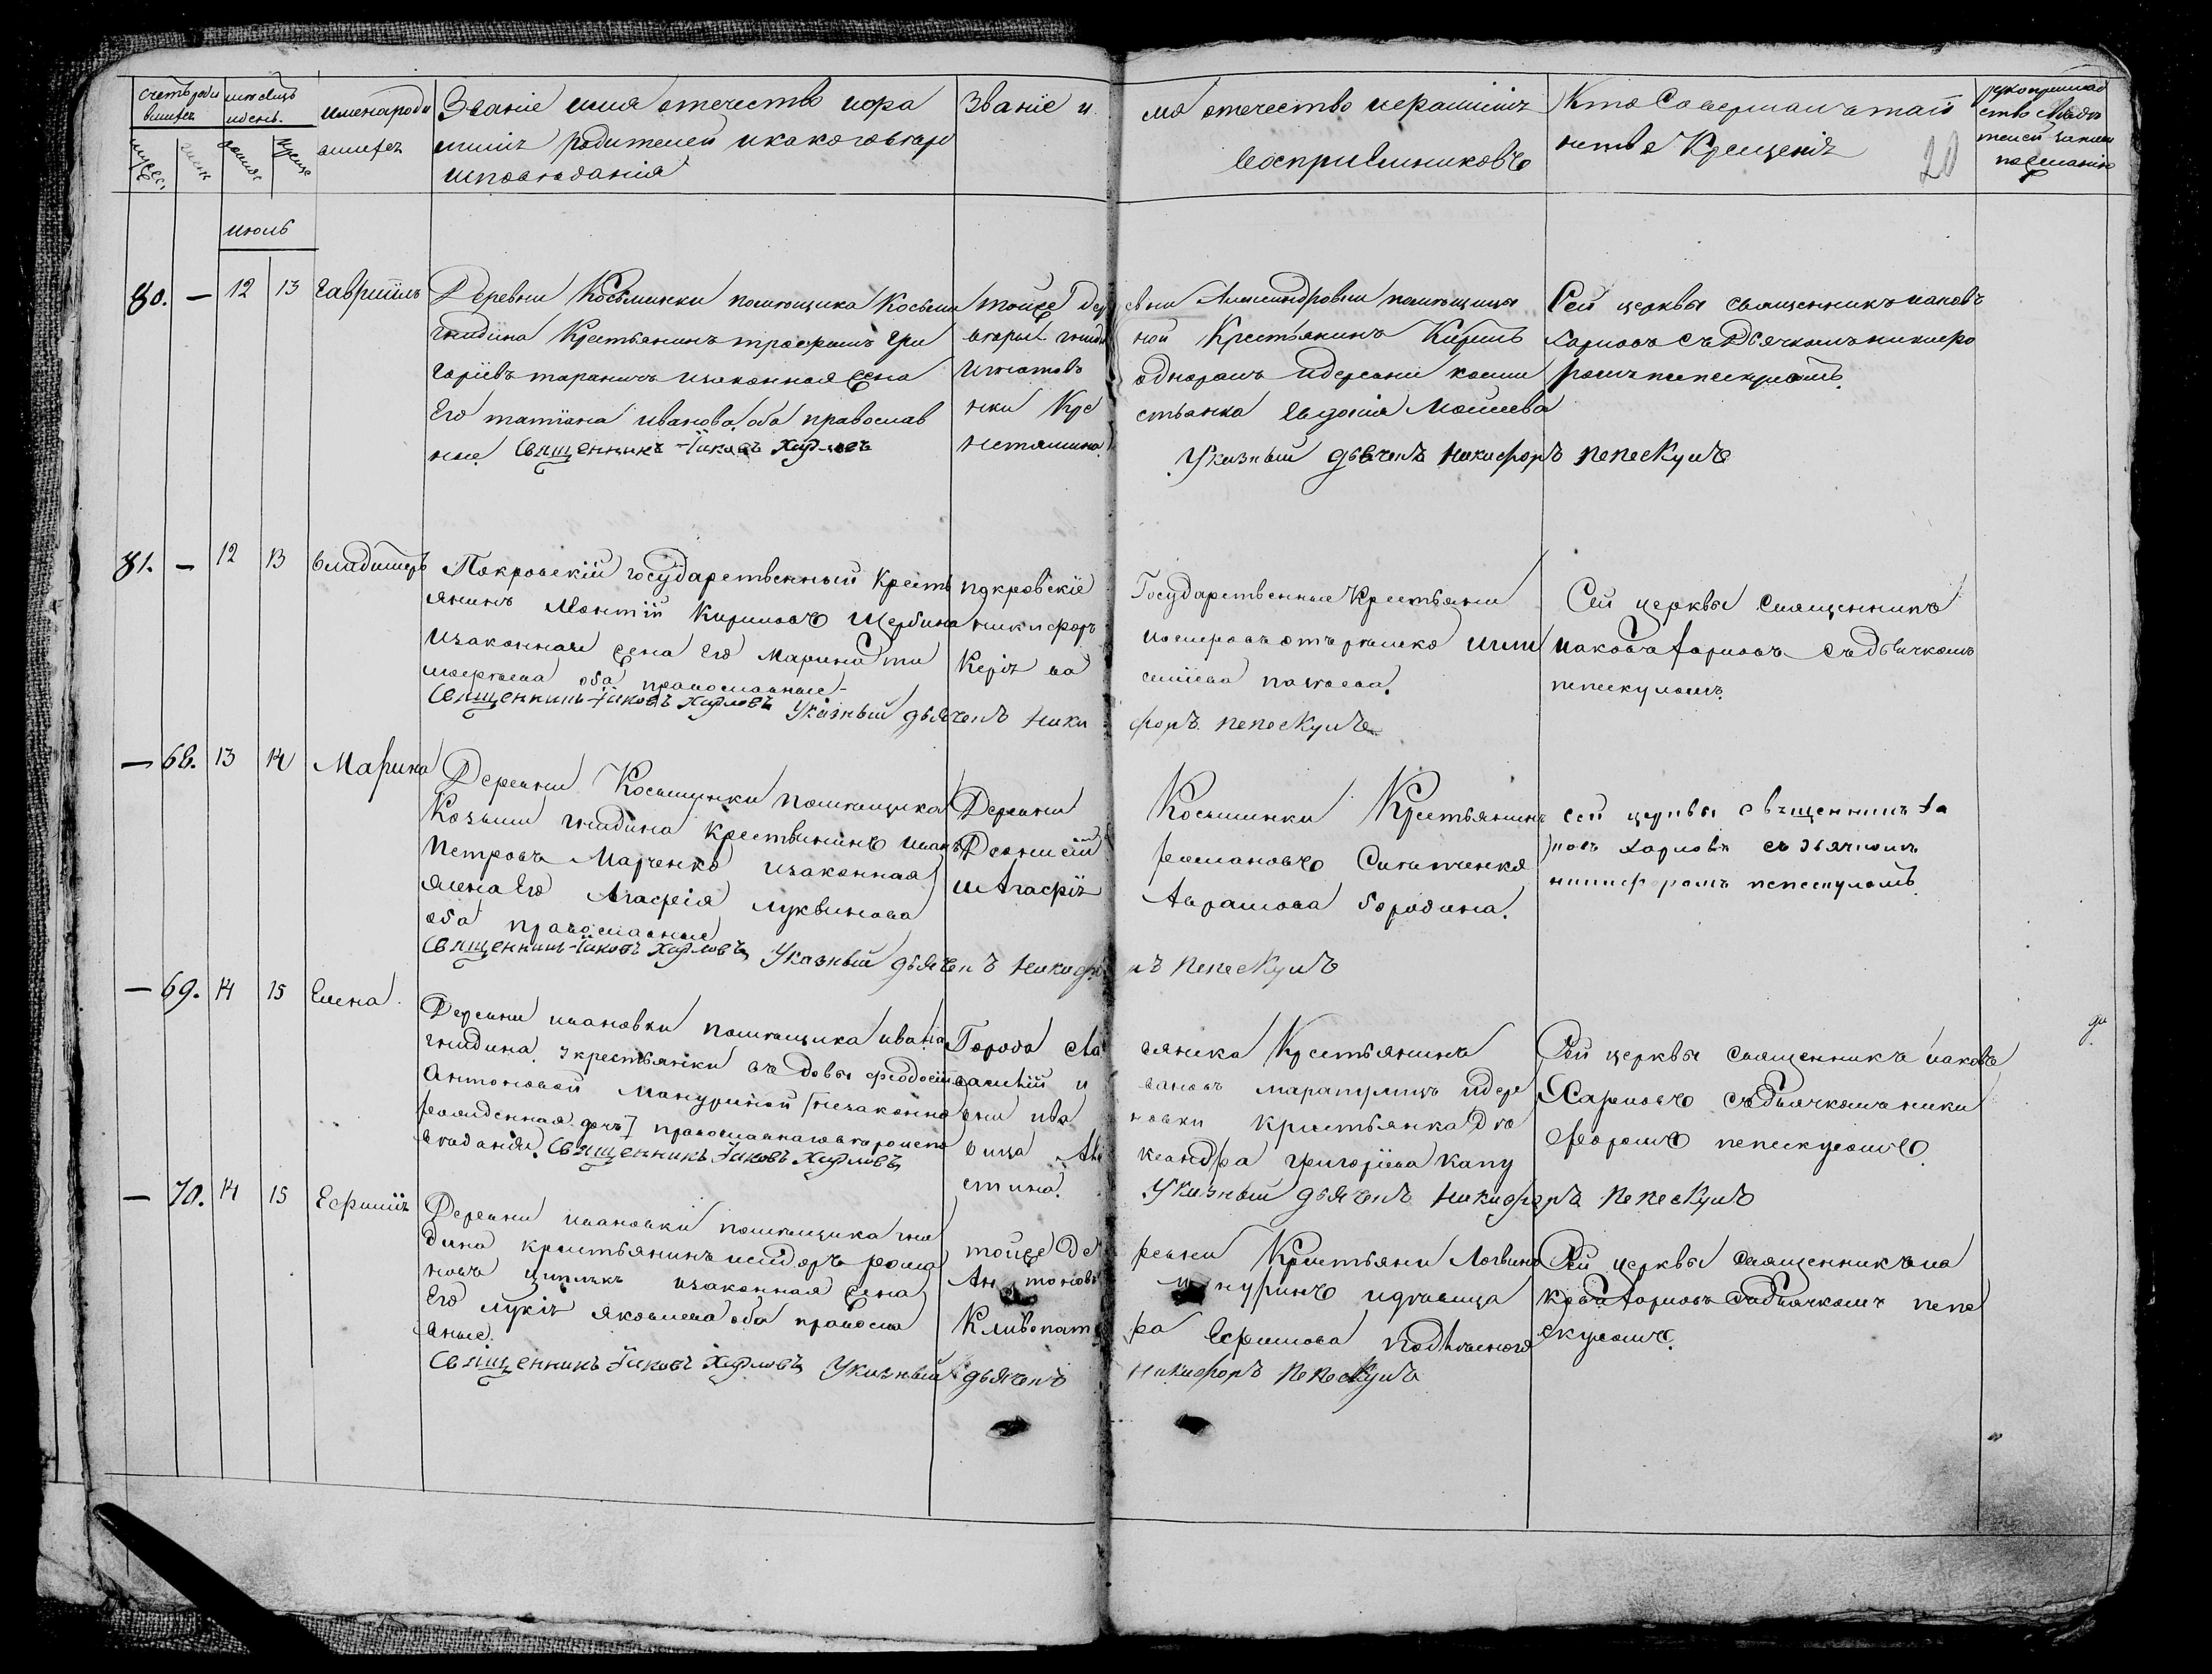 Счетъ роди
вшихся
мѣсяцъ
и день.
имена роди
вшихся
Званіе имя отечество и фа
миліи родителей и какого вѣро
исповѣданія
Званіе и
мя отечество и фамиліи
воспріемниковъ
Кто Совершалъ таи
нства Крещенія
20
рукоприклад
ство свидѣ
телей записи
по желанію
муж.
жен.
рожд.
крещ.
июль
80.
—
12
13
Гавріилъ
Деревни Косьминки помѣщика Косьми
гнидина Крестьянинъ трофимъ Гри
горіевъ таранъ и законная жена
Его татіана иванова оба православ
ные. Священникъ Іаковъ Харловъ
тойже дер
евни Александровки помѣщицы
второй гниди
ной Крестьянинъ Кирилъ
Игнатовъ
и деревни косми
нки Кре
стьянка Евдокія Моисеева
Указный дьяченъ Никифоръ Пепескулъ
Сей церквы священникъ иаковъ
Харловъ съ Дьячкомъ никифо
ромъ пепескуломъ.
81.
—
12
13
владимеръ
Покровскій государственный Кресть
янинъ Леонтій Кириловъ Щербина
и законная жена Его Марина ти
мофѣева оба православные
Священникъ Іаковъ Харловъ Указный дьяченъ Ники
форъ Пепескулъ
покровскіе
Государственные Крестьяни
никифоръ
Сей церквы Священникъ
иаковъ Харловъ съ дьячкомъ
пепескуломъ.
—
68.
13
14
Марина
Деревни Косьминки помѣщика
Козьми гнидина Крестьянинъ иванъ
Петровъ Марченко и законная
жена Его Агафія луквинова
оба православные
Священникъ Іаковъ Харловъ Указный дьяченъ Никифо
ръ Пепескулъ
Деревни
Косьминки Крестьянинъ
Деонисій
романовъ
и Агафія
Аврамова бородина.
сей церквы священникъ Іа
ковъ Харловъ съ дьячкомъ
никифоромъ пепескуломъ
—
69.
14
15
Елена
Деревни ивановки помѣщика ивана
гнидина крестьянки вдовы феодосіи
Антоновой Мануриной [незаконно
рожденная дочь] православнаго вѣроиспо
вѣданія. Священникъ Іаковъ Харловъ
Города Сла
вянска Крестьянинъ
василій и
вановъ и дере
вни ива
новки крестьянка Дѣ
вица Але
ксандра григоріева капу
стина.
Указный дьяченъ Никифоръ Пепескулъ
Сей церквы священникъ иаковъ
Харловъ съ дьячкомъ ники
форомъ пепескуломъ.
—
70.
14
15
Ефимія
Деревни ивановки помѣщика гни
дина крестьянинъ исидоръ рома
новъ и законная жена
Его лукія яковлева оба правосла
вные.
Священникъ Іаковъ Харловъ Указный дьяченъ
Никифоръ Пепескулъ
тойже де
ревни Крестьяни Логвинъ
Антоновъ
Мануринъ и дѣвица
Клиопат
ра Ефимова
Сей церквы священникъ иа
ковъ Харловъ съ дьячкомъ пепе
скуломъ.